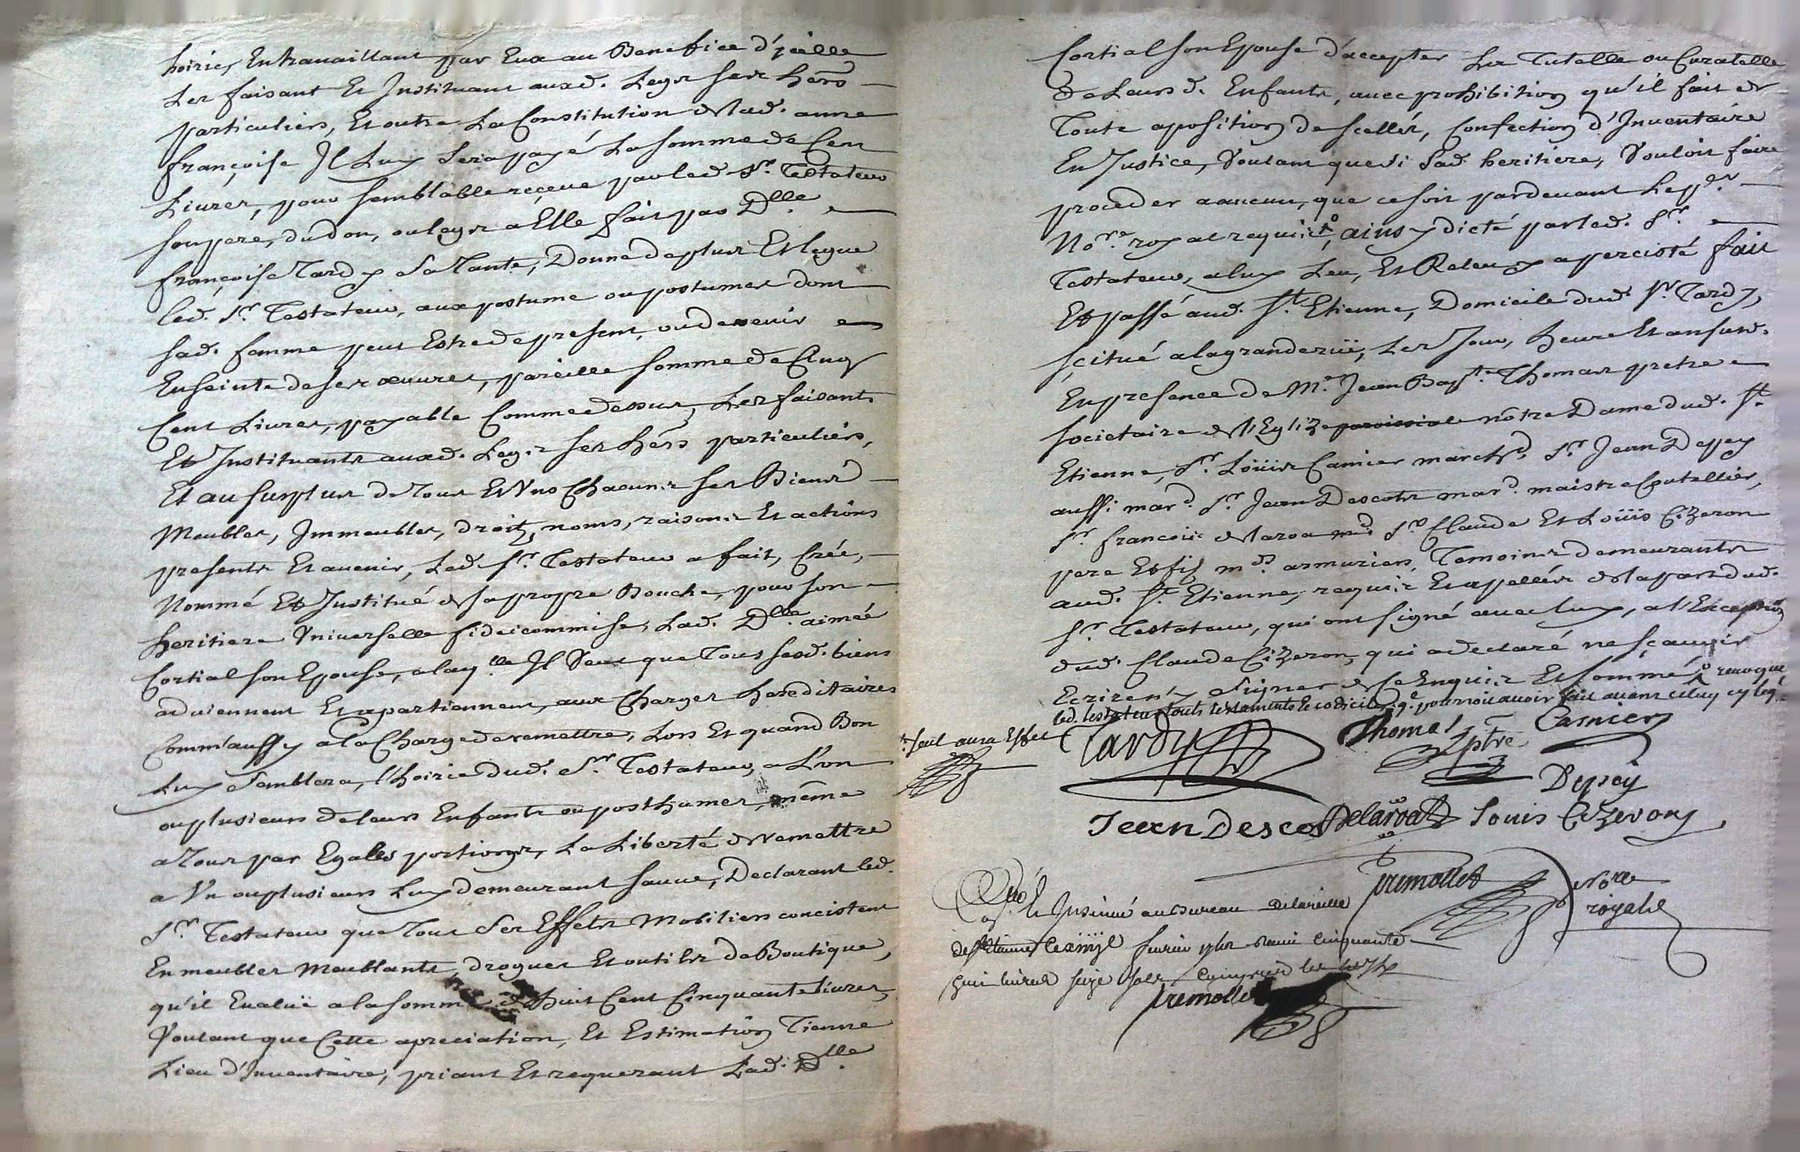 hoiries En travaillant par Eux au Benefice d'jcelle
Les faisant Et Jnstituant auxd. Legs ses hérs
particuliers, Et outre La Constitution de lad. anne
françoise Jl Luy sera payé La somme de Cent
Livres, pour semblable reçeue par led. Sr. Testateur
son pere, du don, ou legs a Elle fait par Dlle.
françoise Tardy sa Tante, Donne de plus Et legue
led. Sr. Testateur, aux postume ou postumes dont
sad. famme peut Estre de present, ou devenir
Enseinte de ses œuvres, pareille somme de Cinq
Cent Livres, payable Comme dessus, Les faisants
Et Jnstituants auxd. Legs ses hérs particuliers,
Et au surplus de Tous Et Uns Chacuns ses Biens
Meubles, Jmmeubles, droits, noms, raisons Et actions
presents Et avenir, Led. Sr. Testateur a fait, Crée,
Nommé Et Jnstitué de sa propre Bouche, pour son
heritiere Universelle fideicommise, Lad. Dlle. aimée
Cortial son Epouse, a laqlle. Jl Veut que Tous sesd. biens
adviennent Et apartiennent, aux Charges hereditaires
Comm'aussy a la Charge de remettre, Lors Et quand Bon
Luy Semblera, l'hoirie dud. Sr. Testateur, a L'un
ou plusieurs de leurs Enfants ou posthumes, même
a Tous par Egales portions, La Liberté de remettre
a Un ou plusieurs Luy demeurant sauve, Declarant led.
Sr. Testateur que Tous Ses Effets Mobiliers concistent
En meubles meublants, drogues Et outils de Boutique,
qu'il Evalue a la somme de huit Cent Cinquante livres,
Voulant que Cette apreciation, Et Estimation Tienne
Lieu d'Jnventaire, priant Et requerant Lad. Dlle.
Cortial son Epouse d'accepter La Tutelle ou Curatelle
de Leursd. Enfants, avec prohibition qu'il fait de
Toute aposition de scellés, Confection d'Jnventaire
En Justice, Voulant que si sad. heritiere, Vouloit faire
proceder a aucun, que ce soit pardevant Le
Nore. royal requis, ainsy dicté par led. Sr.
Testateur, a luy Leu, Et Releu y a percisté fait
Et passé aud. St. Etienne, Domicile dud. Sr. Tardy,
scitué a la grande rüe, Les Jour, heure Et an susd.
En presence de Me. Jean Bapte. Thomas pretre
societaire de l'Eglize paroissiale nôtre Dame dud. St.
Etienne, Sr. Loüis Camier marchd. Sr. Jean Depey
aussi mard. Sr. Jean Descots mard. maistre Coutellier,
Sr. françois delaroa md. Sr. Claude Et Loüis Cizeron
pere Et fils mds. armuriers, Temoins demeurants
aud. St. Etienne, requis Et apellés de la part dud.
Sr. Testateur, qui ont signé avec luy, a l'Exception
dud. Claude Cizeron, qui a declaré ne sçavoir
Ecrire ny signer de Ce Enquis Et sommé revocque
led. testateur touts testaments et codiciles qe. pourroit avoir fait avant celuy cy leql.
seul aura Effet
Tardy Thomas ptre Camier
Depey
Jean Descos Delaroat Louis Cizerons
fremollet Nore
royal
Jnsinué au Bureau
de St Etienne le fevrier
livres seize sols
fremollet